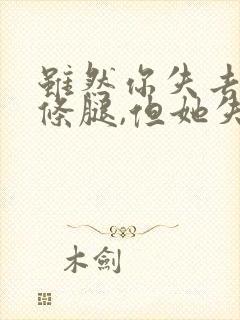 雖然你失去
條腿,但她失
木劍